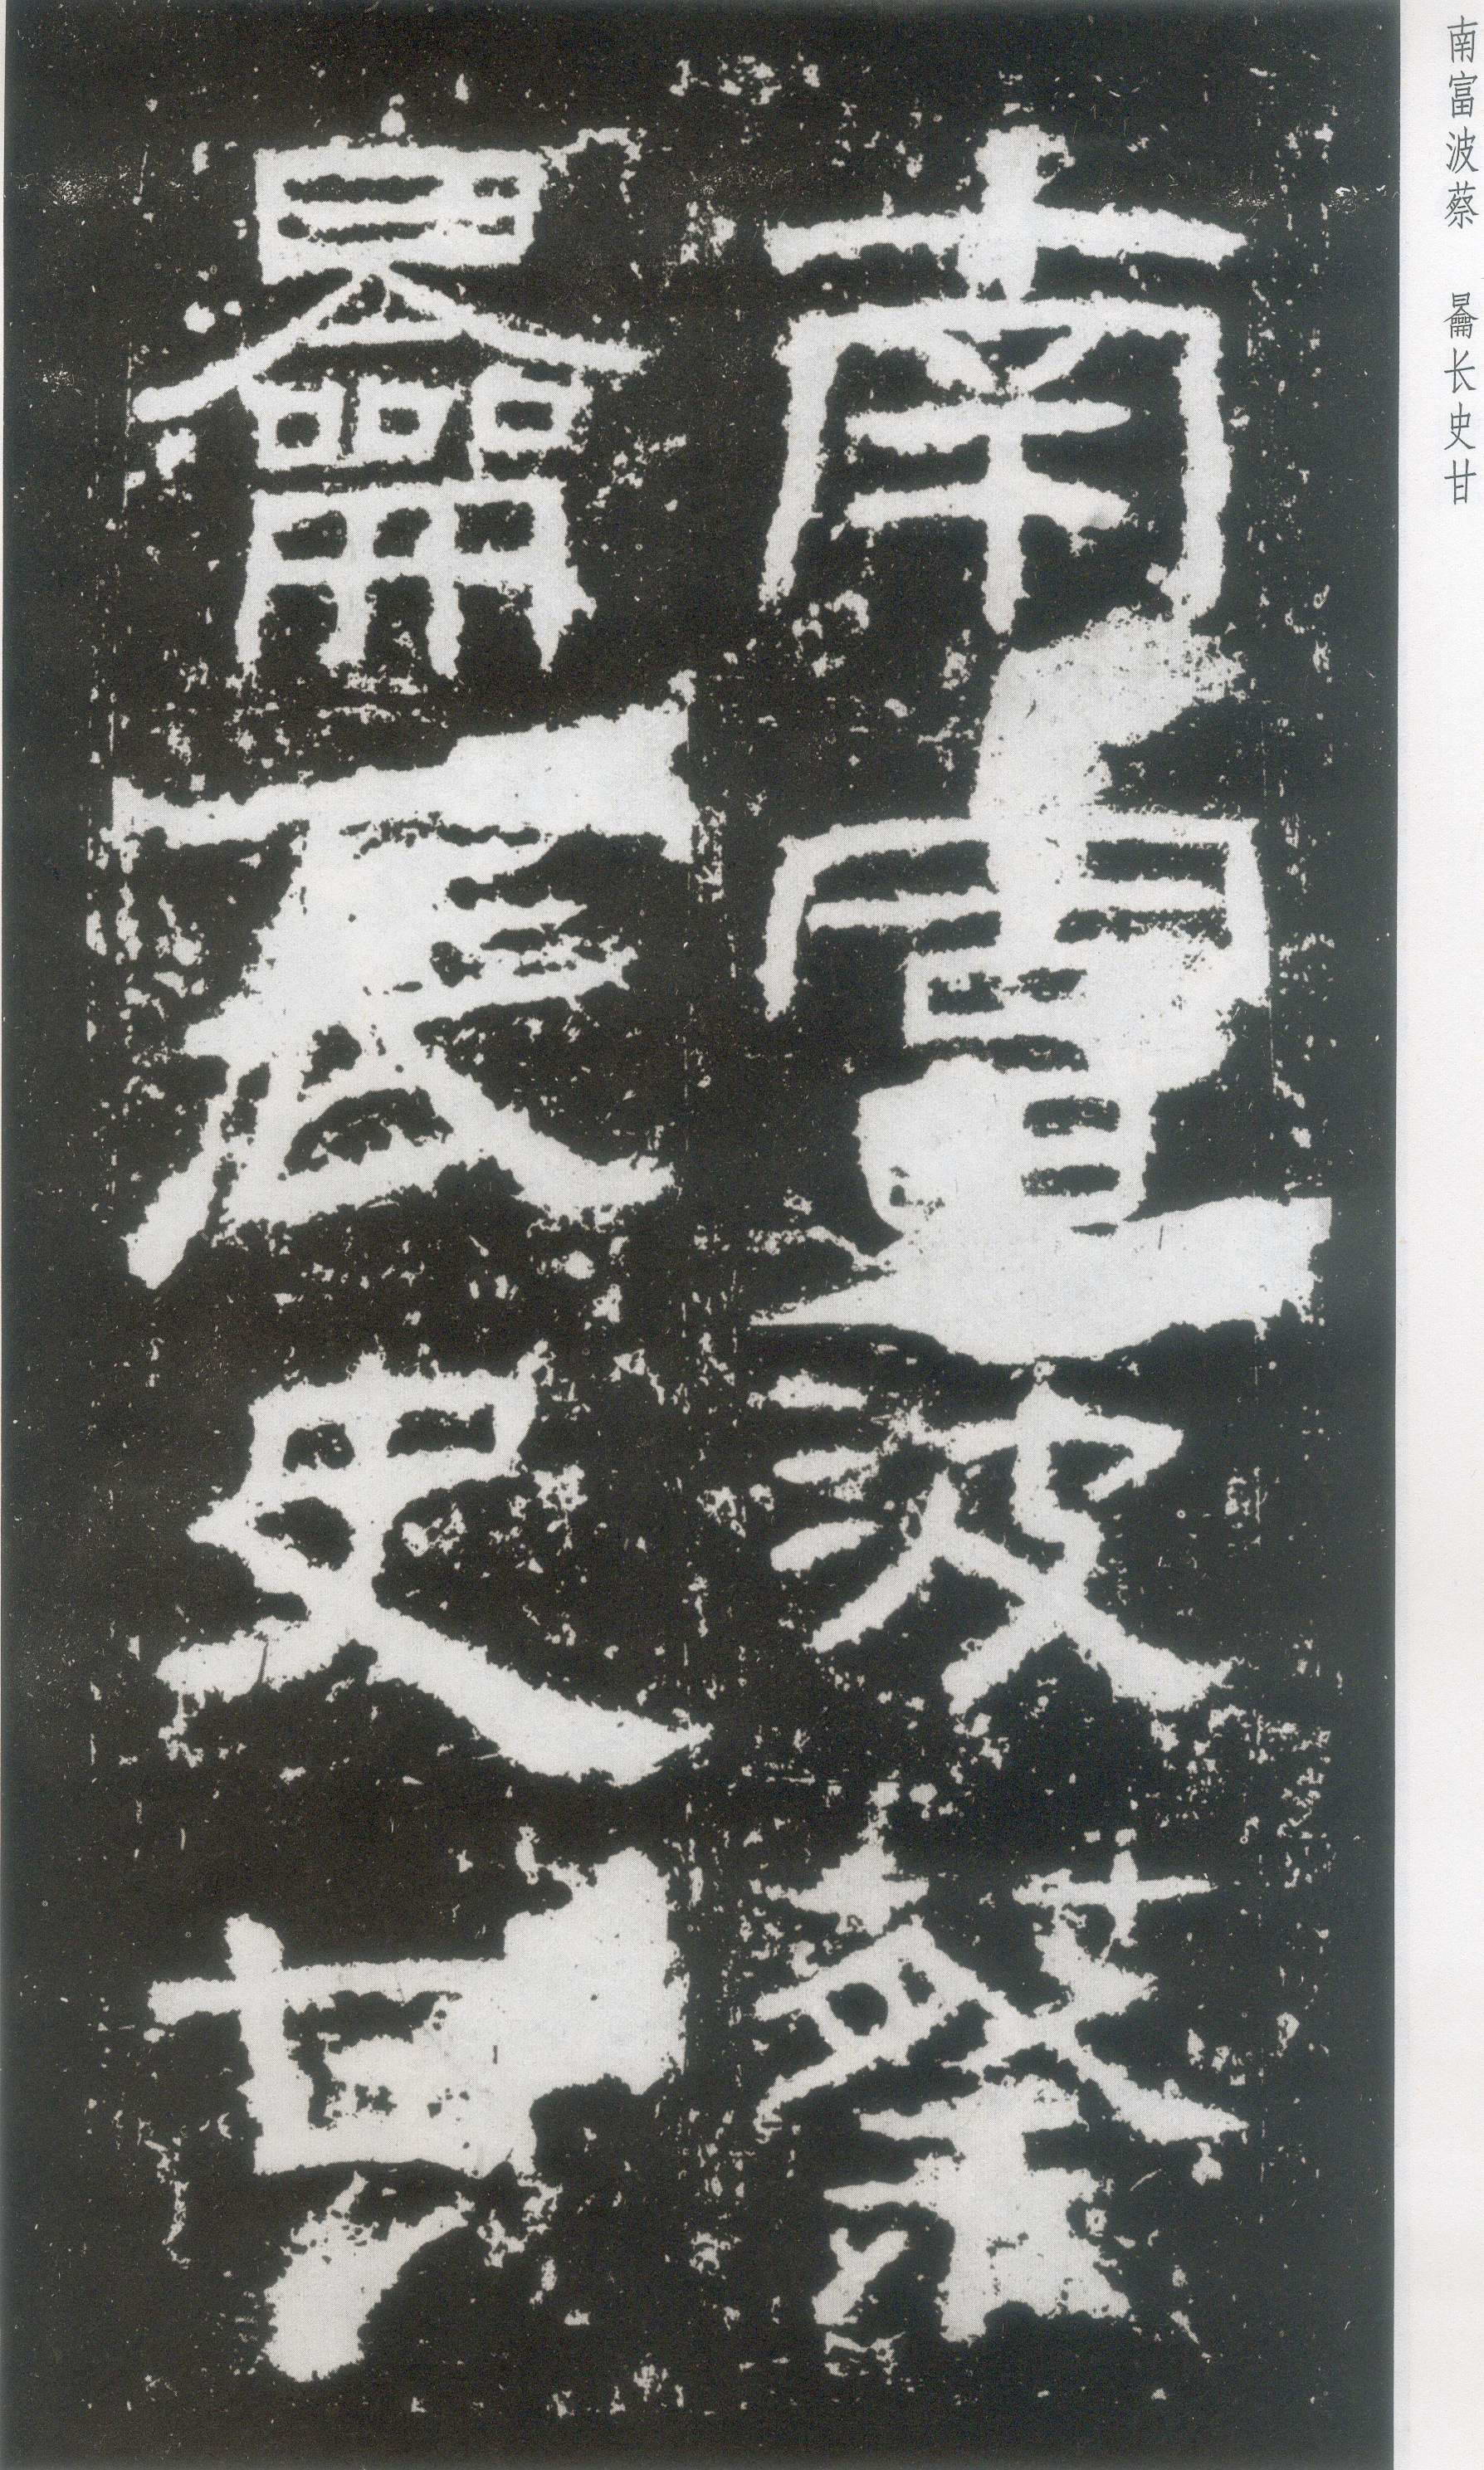 南富波蔡 长史甘
南富波蔡
長史甘